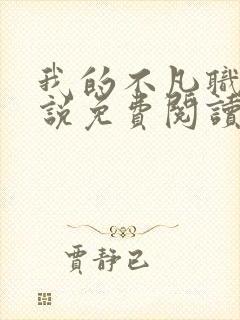 我的不凡職
說免費閱讀
賈靜已